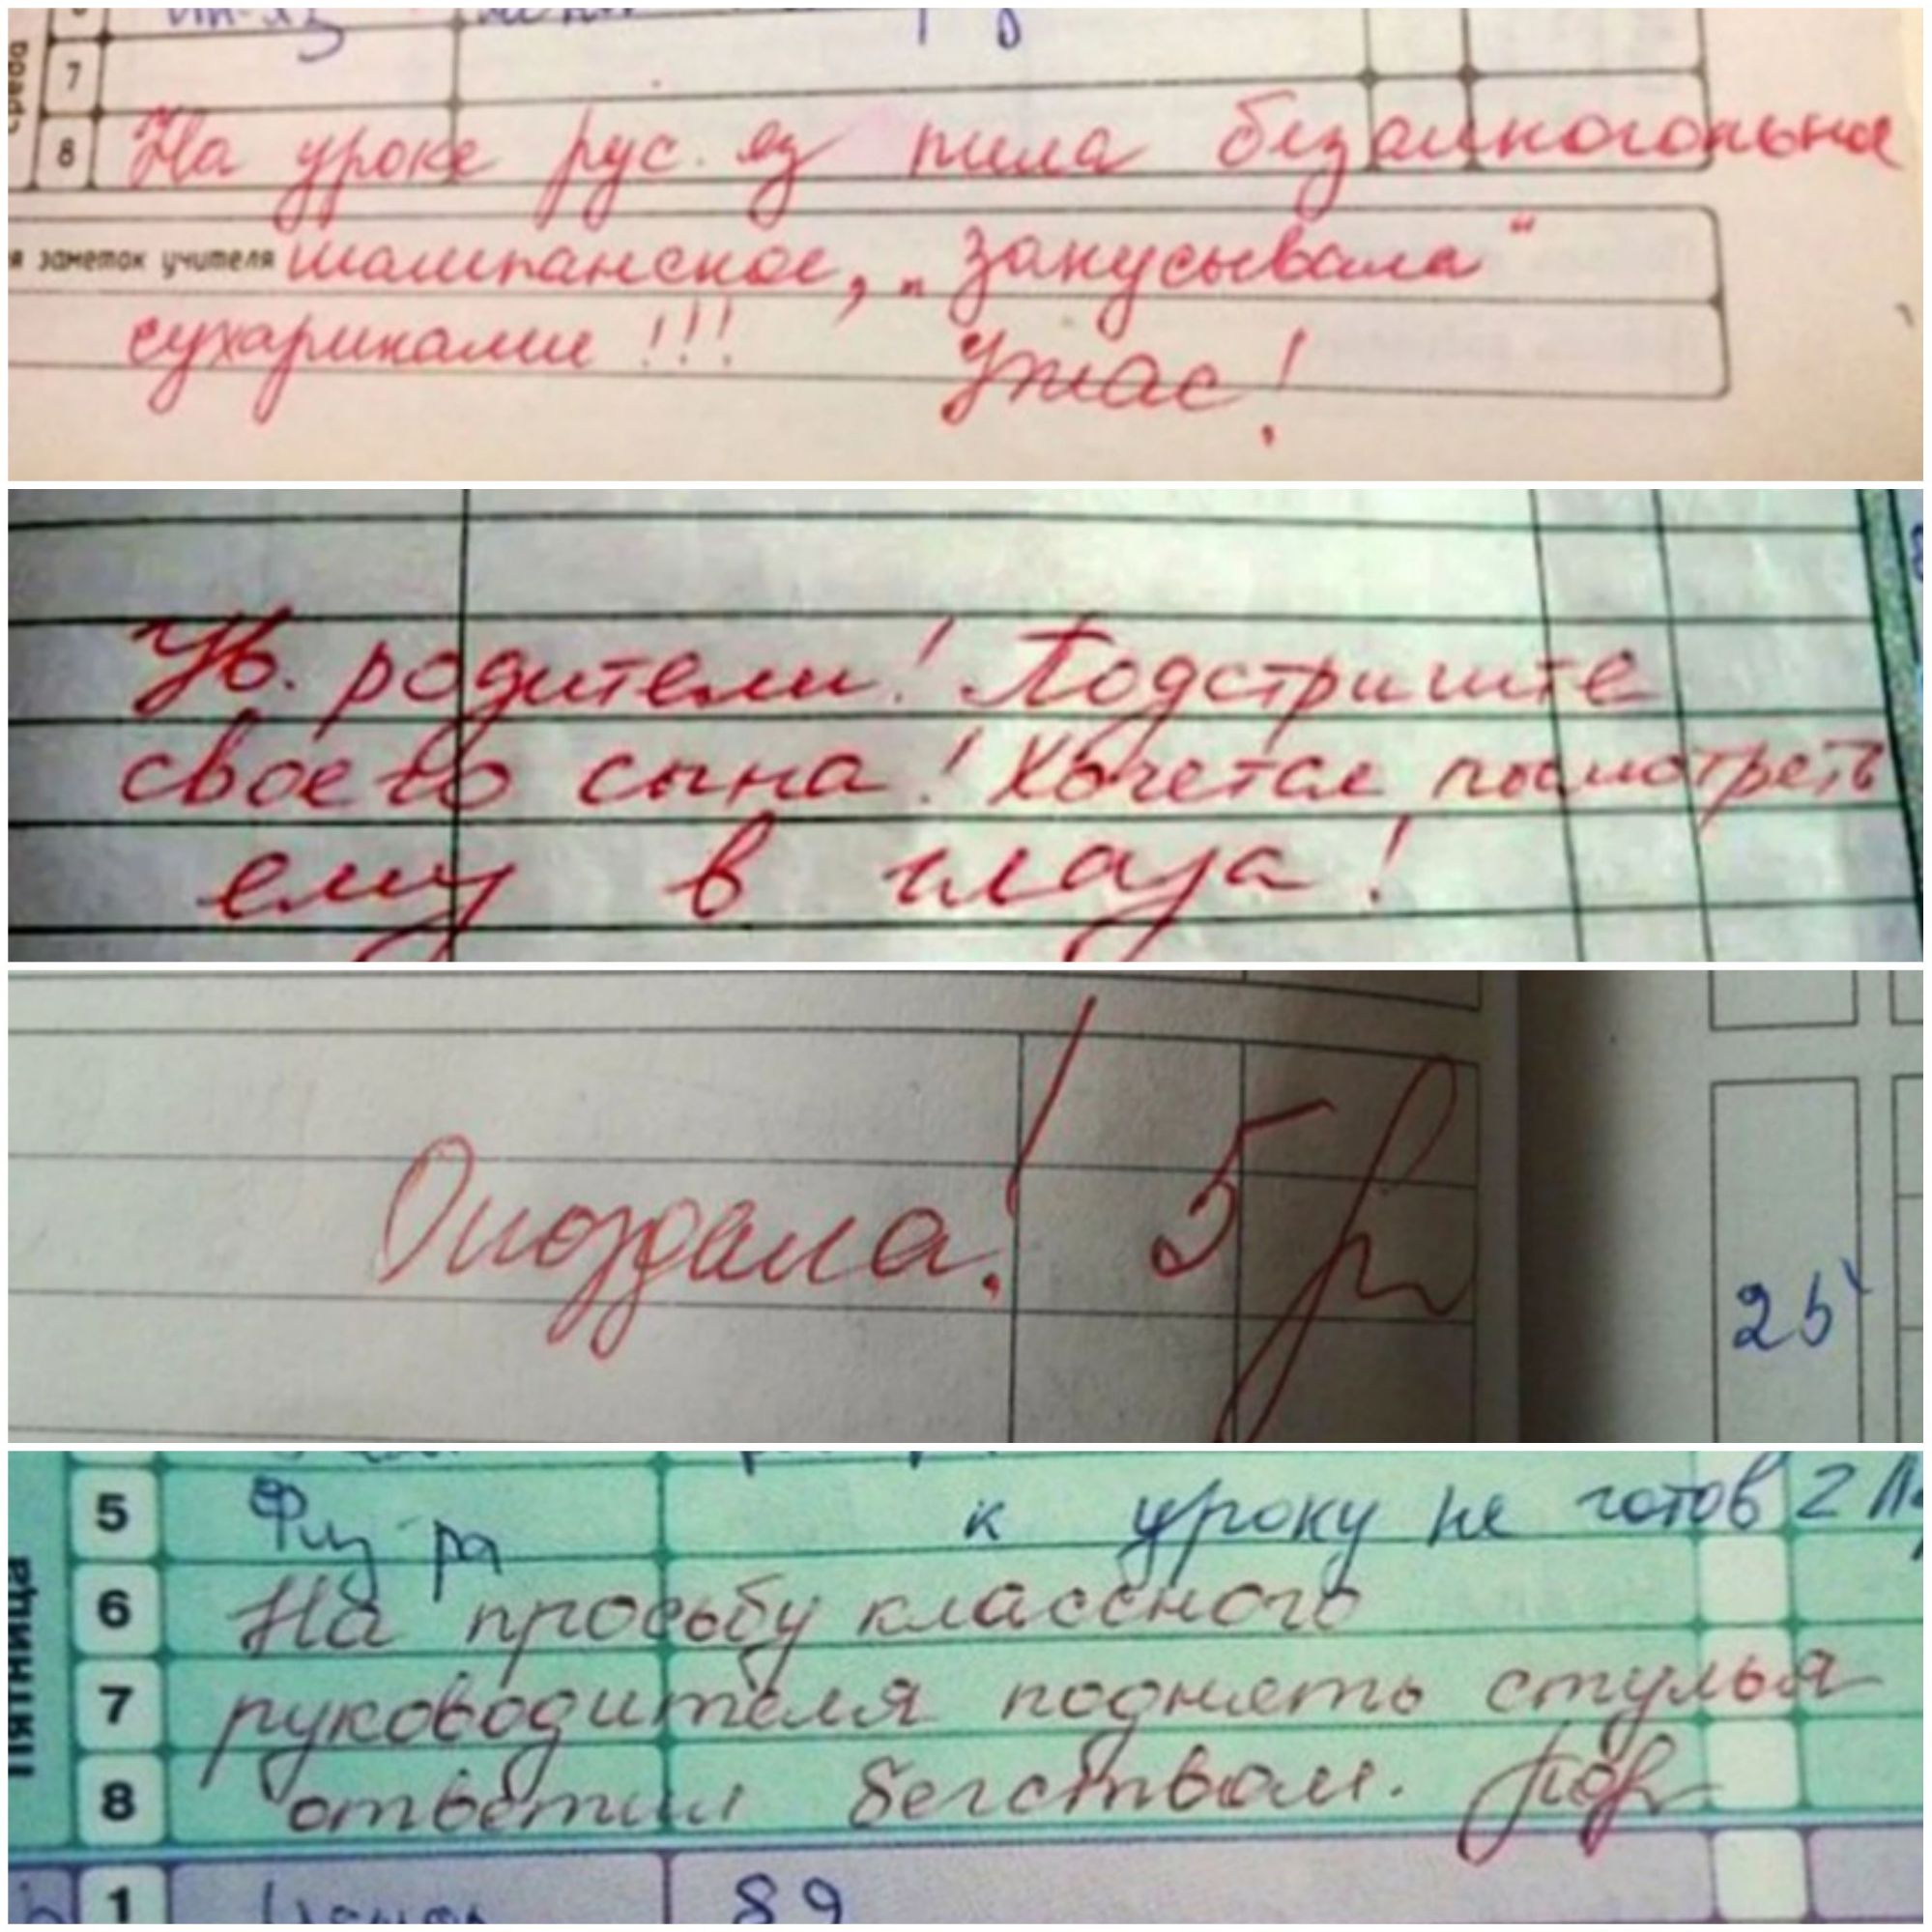 среда
7
8 На уроке рус. яз пила безалкогольное
я заметок учителя шампанское, „закусывала“
сухариками!!! Ужас!
Ув. родители! Подстригите
своего сына! Хочется посмотреть
ему в глаза!
Опоздала! 5
25
Пятница
5 Физ-ра к уроку не готов 2
6 На просьбу классного
7 руководителя поднять стулья
8 ответил бегством.
1 89